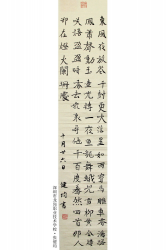 東風夜放花千樹更吹落星如雨寶馬雕車香滿路
鳳簫聲動玉壺光轉一夜魚龍舞蛾兒雪柳黃金縷
笑語盈盈暗香去眾裡尋他千百度驀然回首那人
卻在燈火闌珊處
十月廿六日
建均書